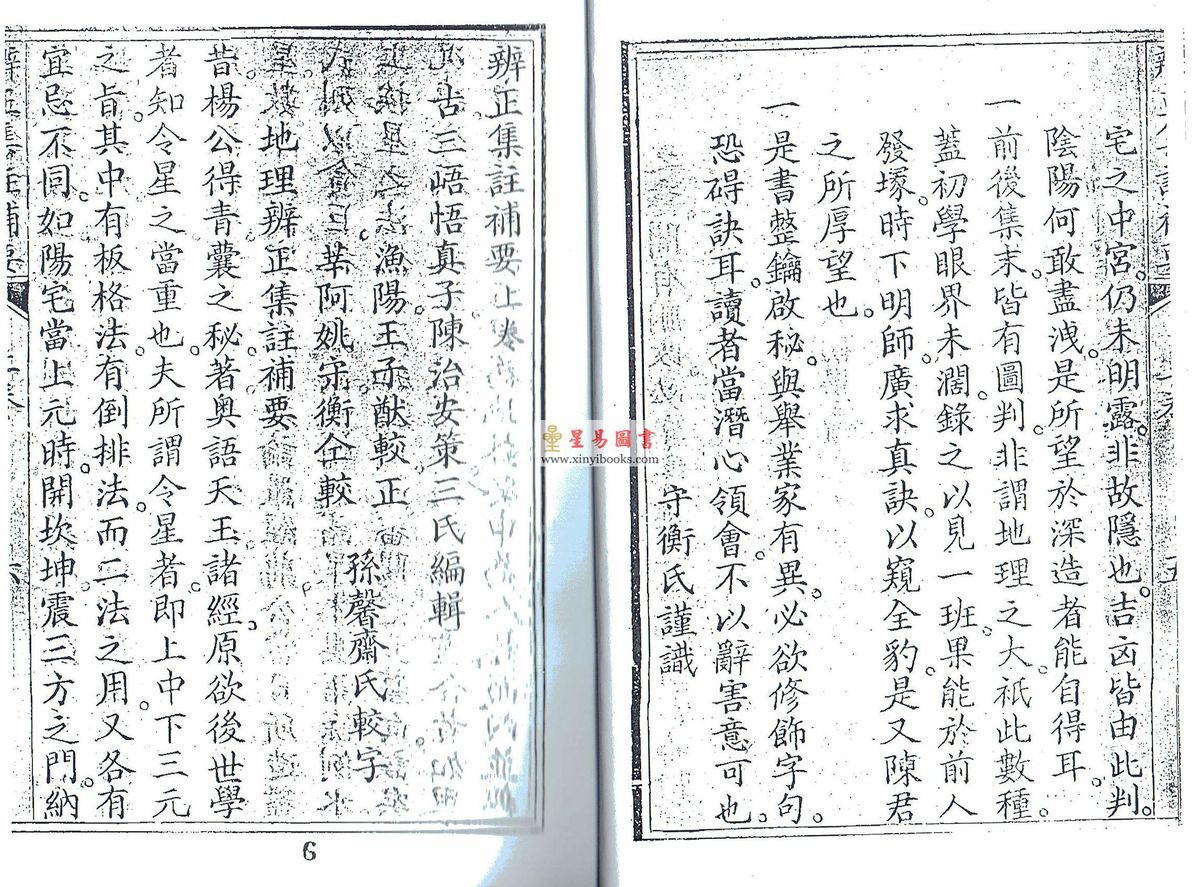 宅之中宮。仍未明露。非故隱也。吉凶皆由此判。
陰陽何敢盡洩。是所望於深造者能自得耳。
一前後集末。皆有圖判。非謂地理之大。祇此數種。
蓋初學眼界未濶。錄之以見一班。果能於前人
發塚時下明師。廣求真訣。以窺全豹。是又陳君
之所厚望也。
一是書整鑰啟秘。與舉業家有異。必欲修飾字句。
恐碍訣耳。讀者當潛心領會。不以辭害意可也。
守衡氏謹識
五
辨正集註補要上卷
古三峿悟真子陳治安策三氏編輯
漁陽王子猷較正
阿姚守衡仝較
孫馨齋氏較字
地理辨正集註補要
昔楊公得青囊之秘。著奧語天玉諸經。原欲後世學
者知令星之當重也。夫所謂令星者。即上中下三元
之旨。其中有板格法。有倒排法。而二法之用。又各有
宜忌不同。如陽宅當上元時。開坎坤震三方之門。納
六
6
星易圖書
www.xinyibooks.com